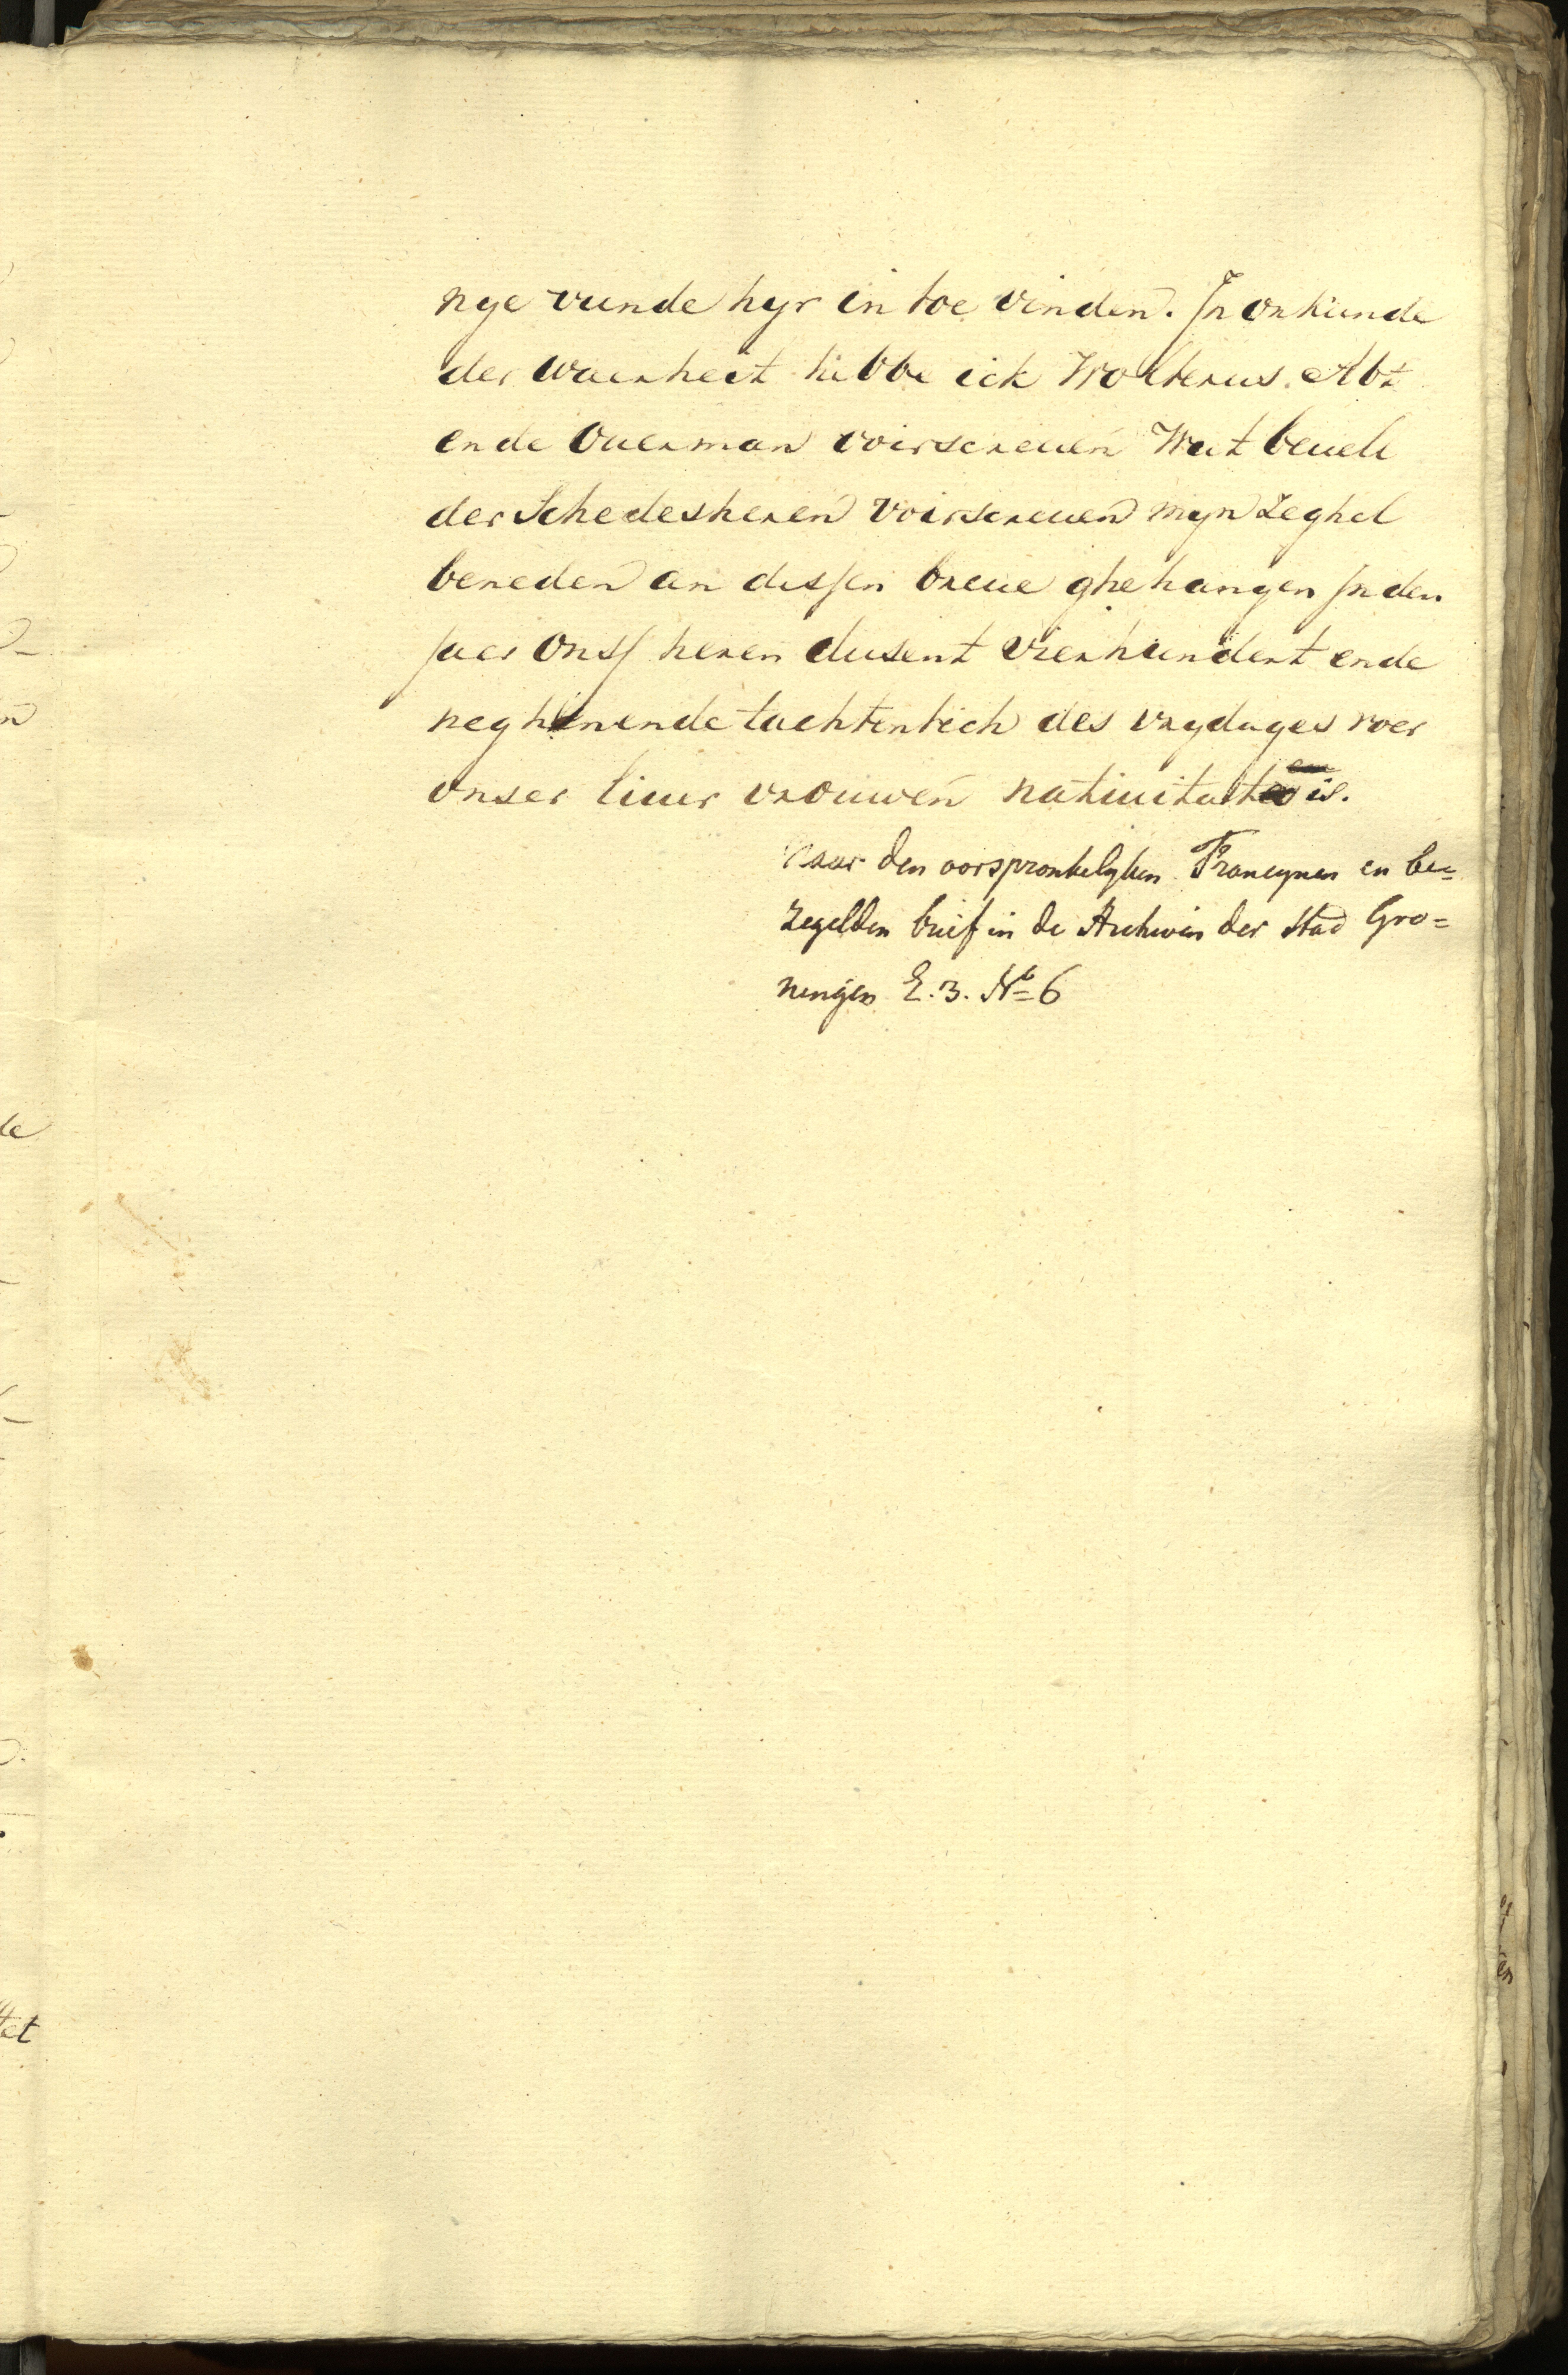 nye vunde hyr in toe vinden. In orkunde
der waerheit hebbe ick Wolterus Abt
ende Ouerman voirscreuen Wt beuele
der Schedesheren voirscreuen myn zeghel
beneden an dessen breue ghehangen In den
Jaer Onss heren dusent vierhundert ende
neghenendetachtentich des vrydages voer
onser lieuer vrouwen natiuitatis.
Naar den oorspronkelyken Francynen en be=
zegelden brief in de Archiven der Stad Gro=
ningen E. 3. No 6
de
tet